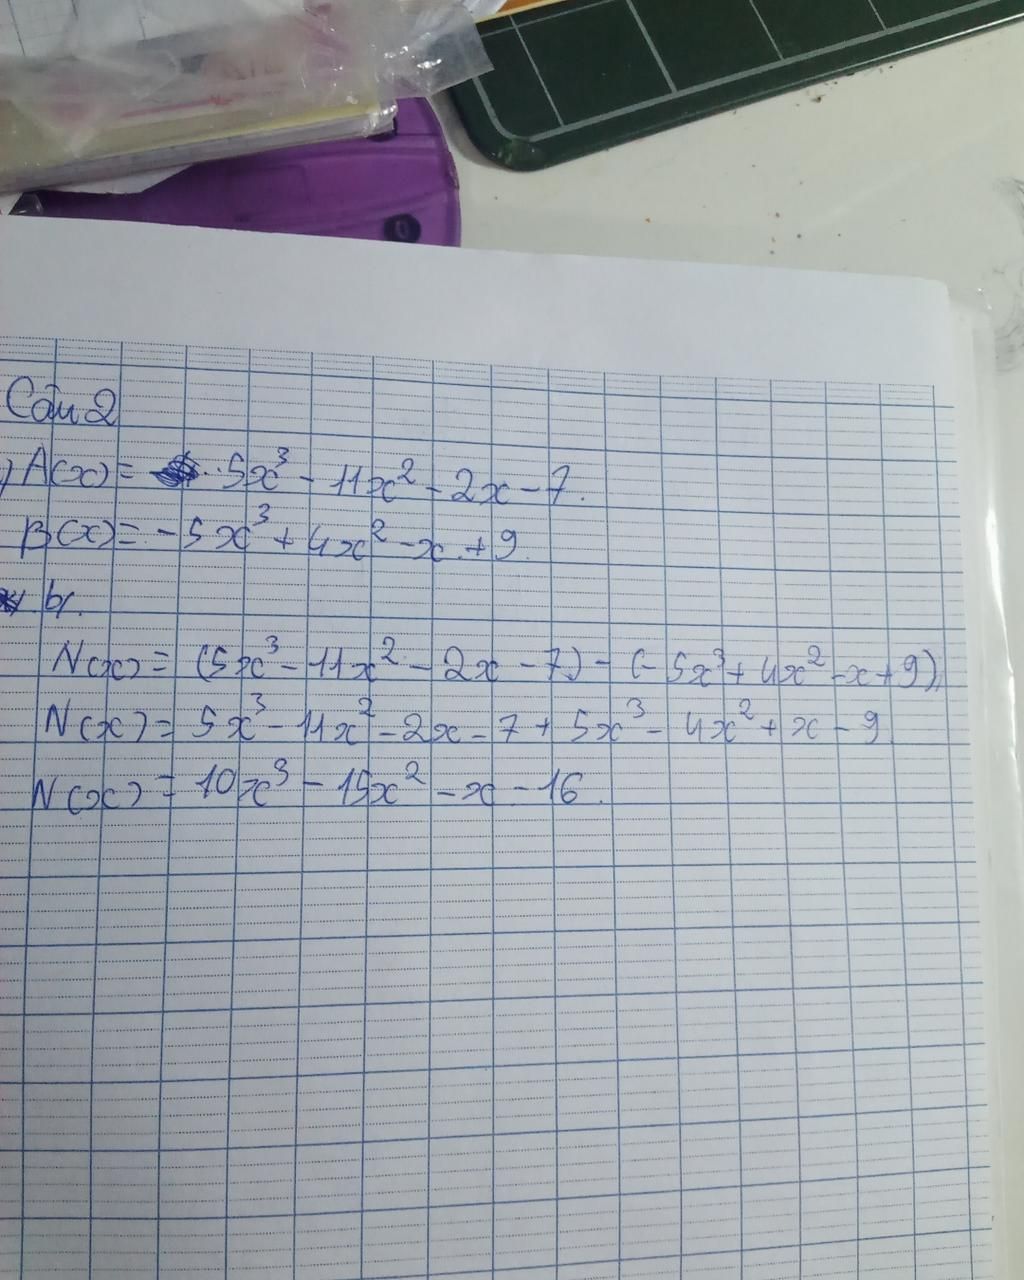 Câu 2
) A(x) = 5x³ - 11x² - 2x - 7.
B(x) = -5x³ + 4x² - x + 9.
b,
N(x) = (5x³ - 11x² - 2x - 7) - (-5x³ + 4x² - x + 9)
N(x) = 5x³ - 11x² - 2x - 7 + 5x³ - 4x² + x - 9
N(x) = 10x³ - 15x² - x - 16.